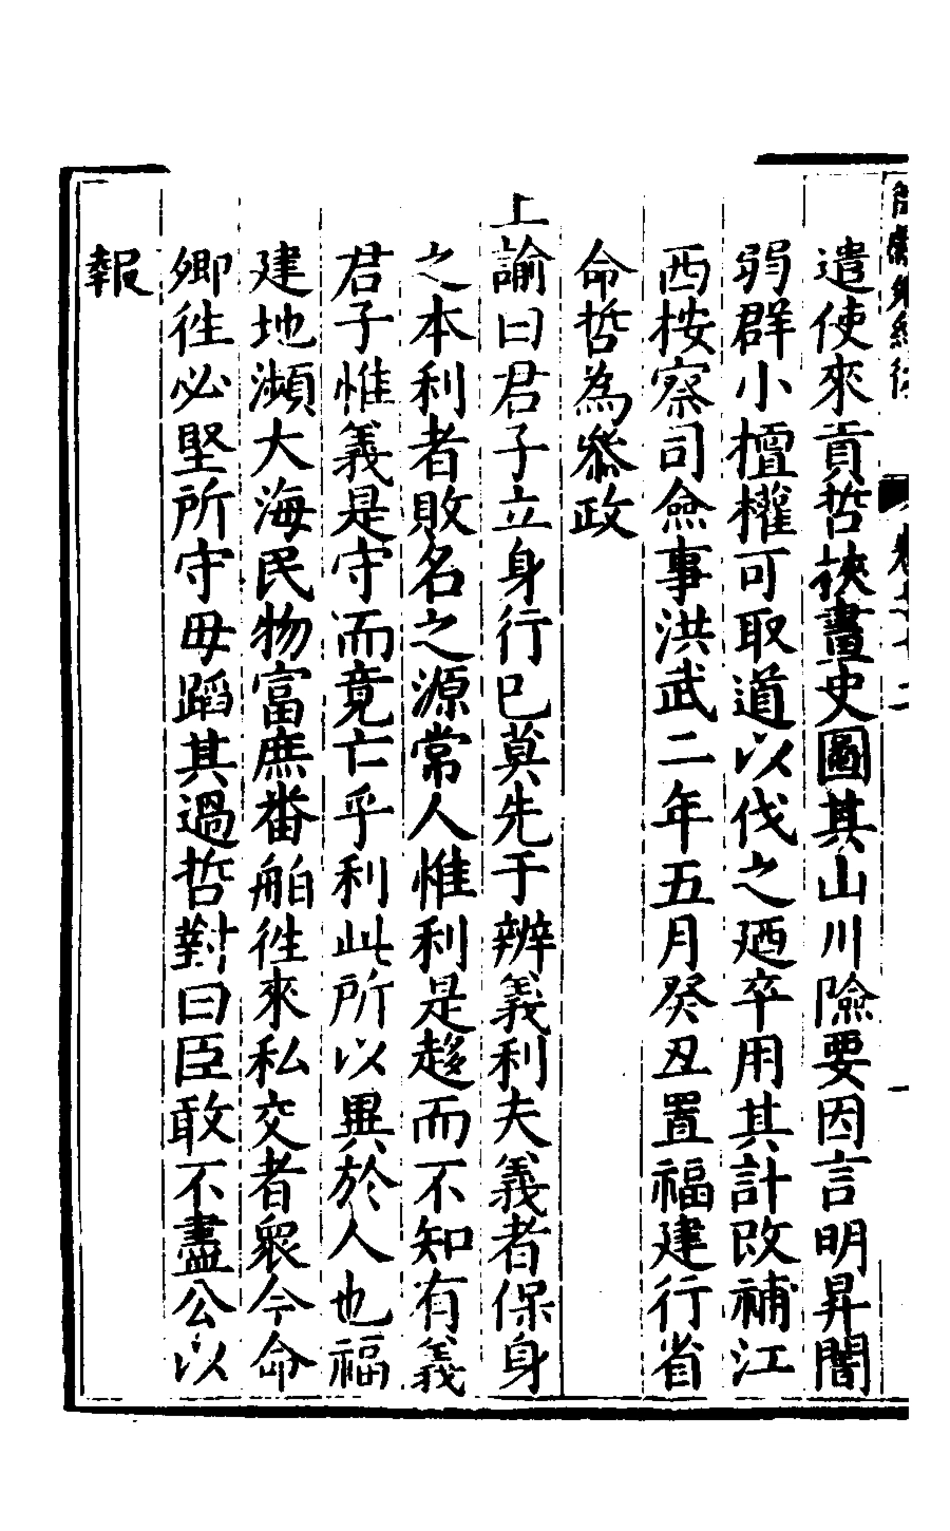 遣使來貢哲挾畫史圖其山川險要因言明昇闇
弱群小擅權可取道以伐之廼卒用其計改補江
西按察司僉事洪武二年五月癸丑置福建行省
命哲為叅政
上諭曰君子立身行已莫先于辨義利夫義者保身
之本利者敗名之源常人惟利是趨而不知有義
君子惟義是守而竟亡乎利此所以異於人也福
建地瀕大海民物富庶番舶徃來私交者衆今命
卿徃必堅所守毋蹈其過哲對曰臣敢不盡公以
報